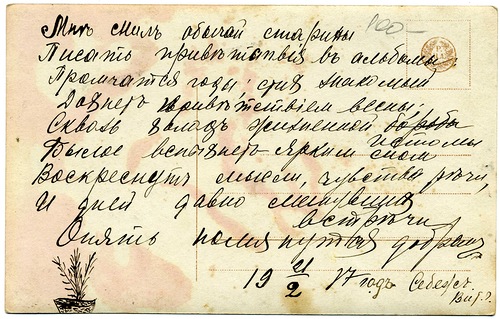 100-
Мнѣ милъ обычай старины
Писать привѣтствія въ альбомы.
Промчатся годы; стих знакомый
Дохнетъ привѣтствіем весны;
Сквозь холодъ жизненной борьбы
истомы
Былое вспыхнетъ ярким сном
Воскреснутъ мысли, чувства, рѣчи,
И дней давно минувших
встрѣчи
Опять помянутся добром
19 21/2 17 годъ Себежъ
Вит.г.